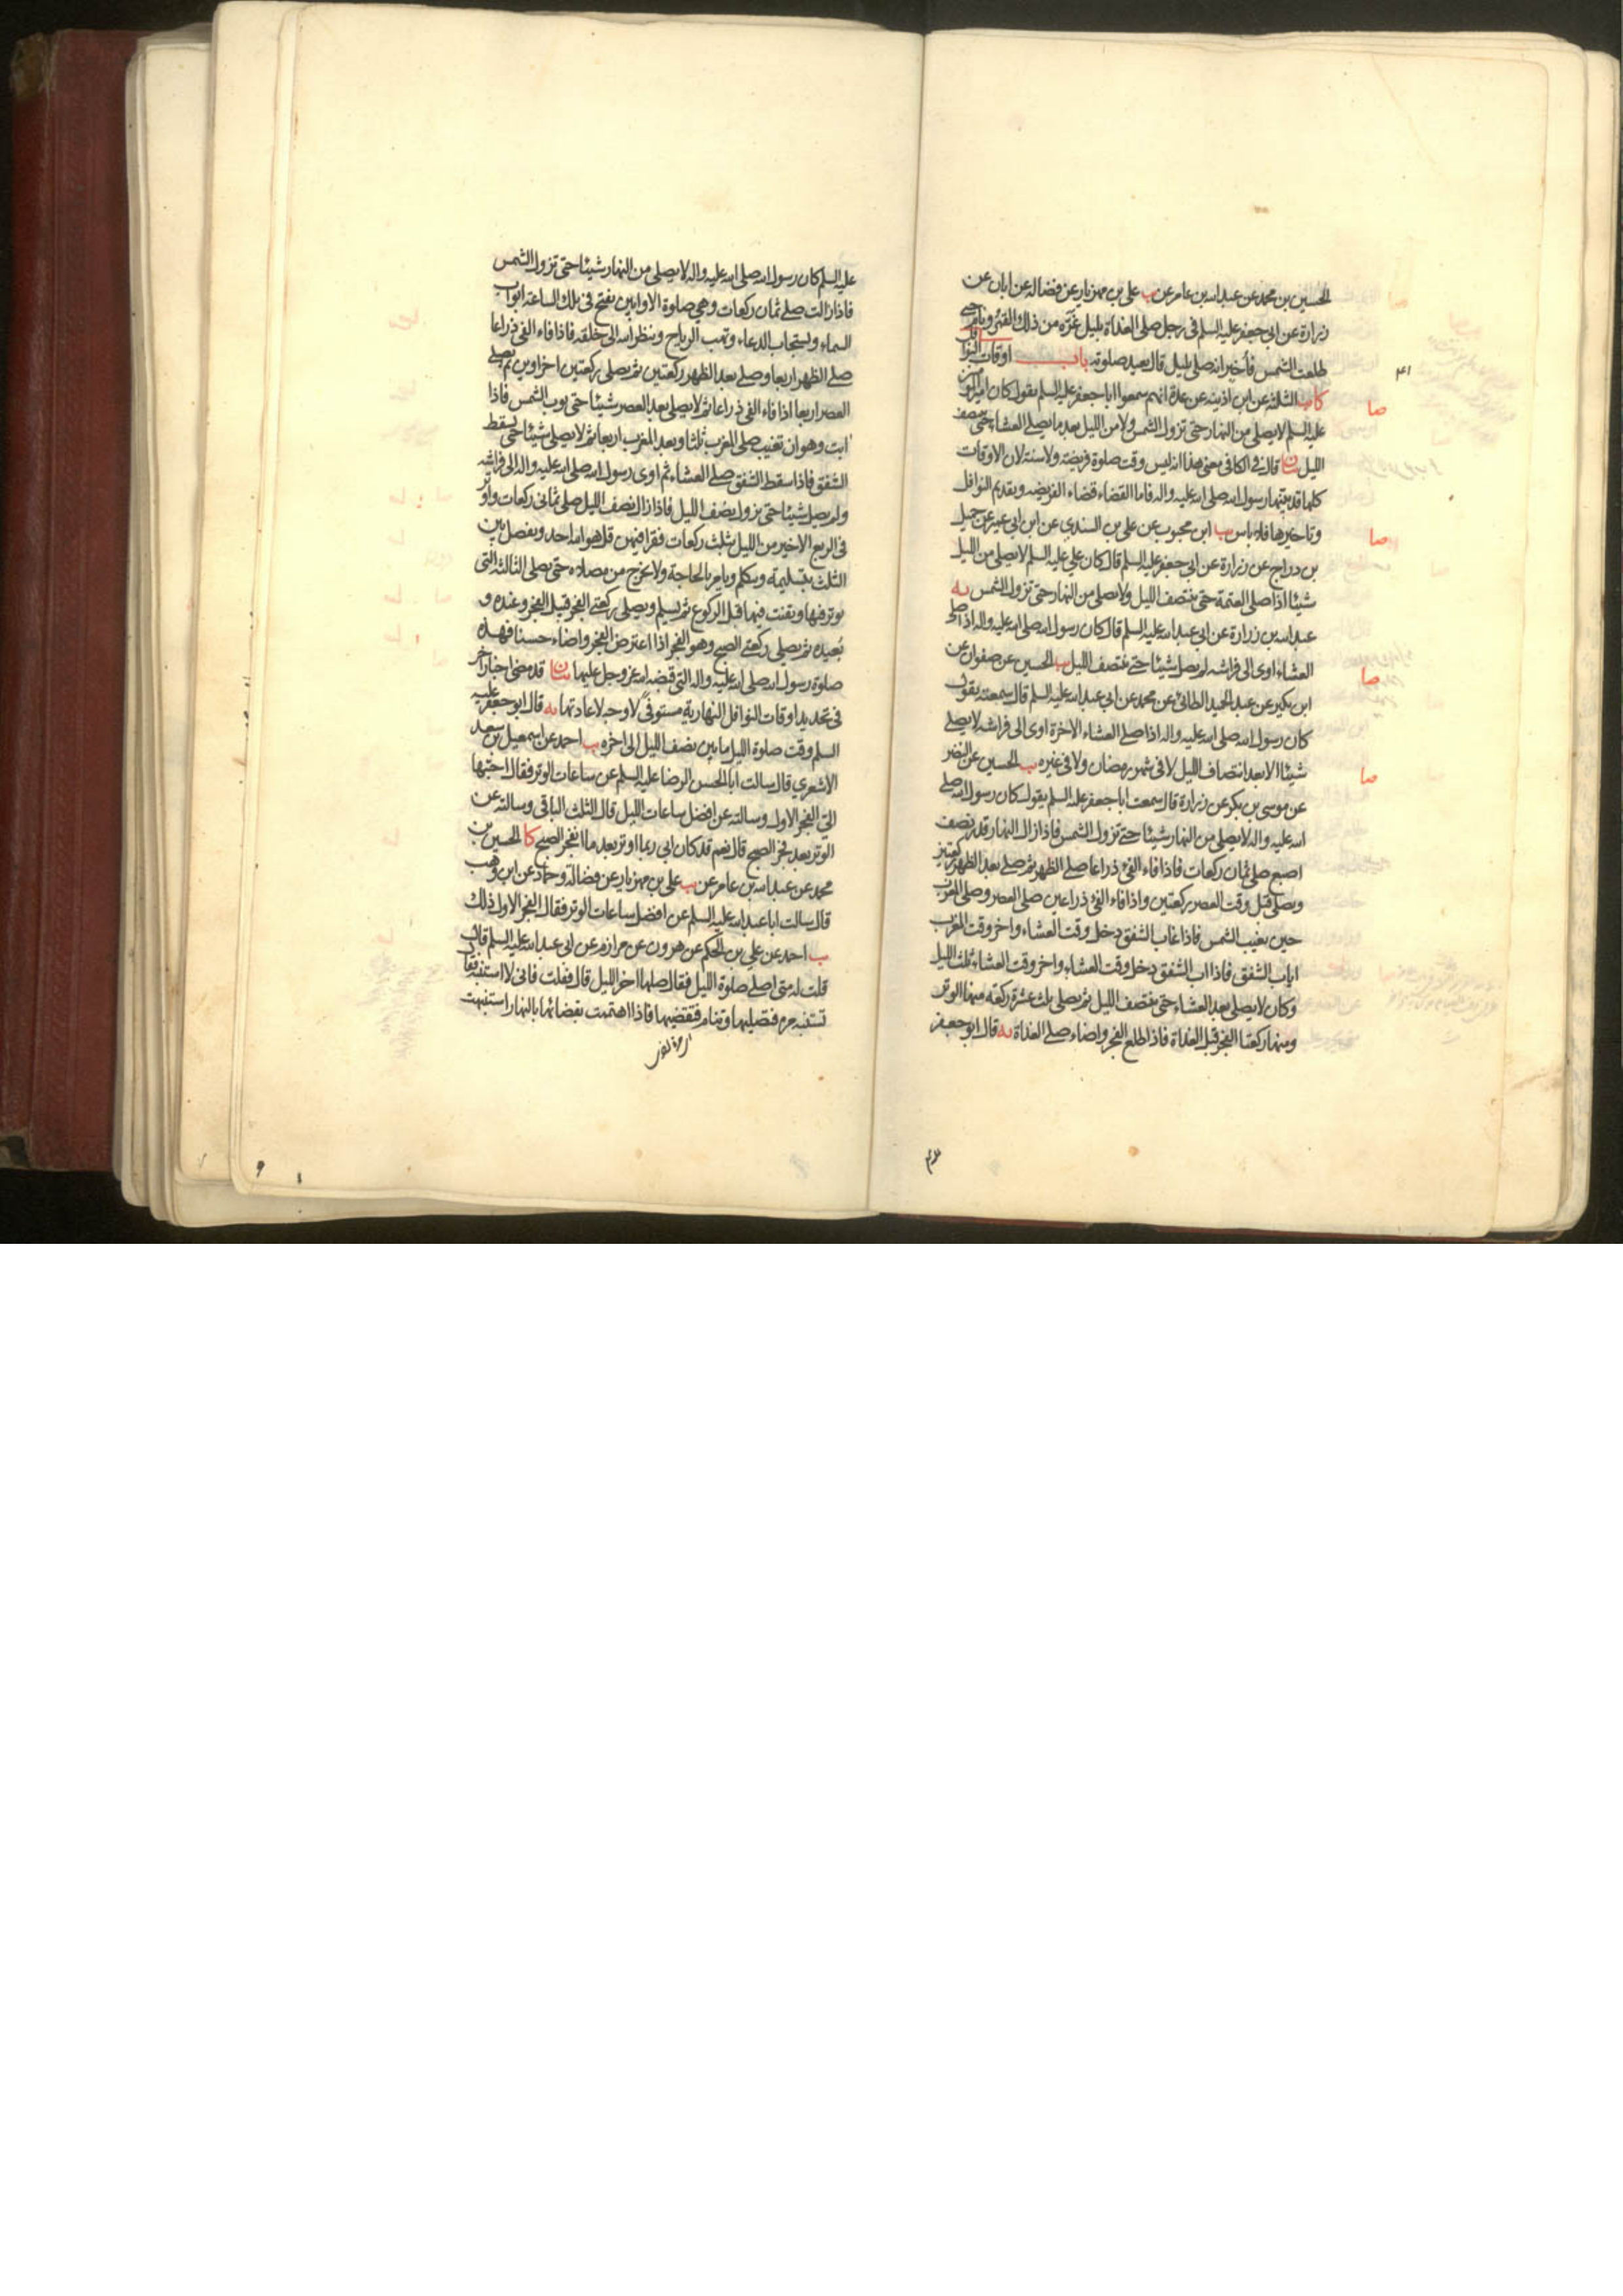 الحسين بن محمد عن عبد الله بن عامر عن يب علي بن مهزيار عن فضالة عن ابان عن
زرارة عن ابي جعفر عليه السلم في رجل صلى الغداة بليل غره من ذلك القمر ونام حتى
طلعت الشمس فأخبر انه صلى بليل قال يعيد صلوته باب اوقات النوافل
۴۱
صا
كا يب الثلثة عن ابن اذينه عن عدة انهم سمعوا ابا جعفر عليه السلم يقول كان امير المؤمنين
عليه السلم لا يصلي من النهار حتى تزول الشمس ولا من الليل بعد ما يصلي العشاء حتى ينتصف
الليل بيان قال في الكافي معنى هذا انه ليس وقت صلوة فريضة ولا سنة لان الاوقات
كلها قد بينها رسول الله صلى الله عليه واله فاما القضاء قضاء الفريضه وتقديم النوافل
صا
وتاخيرها فلا باس يب ابن محبوب عن علي بن السندي عن ابن ابي عمير عن جميل
بن دراج عن زرارة عن ابي جعفر عليه السلم قال كان علي عليه السلم لا يصلي من الليل
شيئا اذا صلى العتمة حتى ينتصف الليل ولا يصلي من النهار حتى تزول الشمس يه
عبد الله بن زرارة عن ابي عبد الله عليه السلم قال كان رسول الله صلى الله عليه واله اذا صلى
صا
العشاء اوى الى فراشه لم يصل شيئا حتى ينتصف الليل يب الحسين عن صفوان عن
ابن بكير عن عبد الحميد الطائي عن محمد عن ابي عبد الله عليه السلم قال سمعته يقول
كان رسول الله صلى الله عليه واله اذا صلى العشاء الاخرة اوى الى فراشه لا يصلي
صا
شيئا الا بعد انتصاف الليل لا في شهر رمضان ولا في غيره يب الحسين عن النضر
عن موسى بن بكر عن زرارة قال سمعت ابا جعفر عليه السلم يقول كان رسول الله صلى
الله عليه واله لا يصلي من النهار شيئا حتى تزول الشمس فاذا زال النهار قدر نصف
اصبع صلى ثمان ركعات فاذا فاء الفئ ذراعا صلى الظهر ثم صلى بعد الظهر ركعتين
ويصلي قبل وقت العصر ركعتين واذا فاء الفئ ذراعين صلى العصر وصلى المغرب
حين يغيب الشمس فاذا غاب الشفق دخل وقت العشاء واخر وقت المغرب
اياب الشفق فاذا اب الشفق دخل وقت العشاء واخر وقت العشاء ثلث الليل
وكان لا يصلي بعد العشاء حتى ينتصف الليل ثم يصلي ثلث عشرة ركعة منها الوتر
ومنها ركعتا الفجر قبل الغداة فاذا طلع الفجر واضاء صلى الغداة يه قال ابو جعفر
عليه السلم كان رسول الله صلى الله عليه واله لا يصلي من النهار شيئا حتى تزول الشمس
فاذا زالت صلى ثمان ركعات وهي صلوة الاوابين يفتح في تلك الساعة ابواب
السماء ويستجاب الدعاء وتهب الرياح وينظر الله الى خلقه فاذا فاء الفئ ذراعا
صلى الظهر اربعا وصلى بعد الظهر ركعتين ثم يصلي ركعتين اخراوين ثم يصلي
العصر اربعا اذا فاء الفئ ذراعا ثم لا يصلي بعد العصر شيئا حتى يوب الشمس فاذا
ابت وهو ان تغيب صلى المغرب ثلثا وبعد المغرب اربعا ثم لا يصلي شيئا حتى يسقط
الشفق فاذا سقط الشفق صلى العشاء ثم اوى رسول الله صلى الله عليه واله الى فراشه
ولم يصل شيئا حتى يزول نصف الليل فاذا زال نصف الليل صلى ثماني ركعات واوتر
في الربع الاخير من الليل بثلث ركعات فقرا فيهن قل هو الله احد ويفصل بين
الثلث بتسليمة ويتكلم ويامر بالحاجة ولا يخرج من مصلاه حتى يصلي الثالثة التي
يوتر فيها ويقنت فيها قبل الركوع ثم يسلم ويصلي ركعتي الفجر قبيل الفجر وعنده و
بعيده ثم يصلي ركعتي الصبح وهو الفجر اذا اعترض الفجر واضاء حسنا فهذه
صلوة رسول الله صلى الله عليه واله التي قبضه الله عز وجل عليها بيان قد مضى اخبار اخر
في تحديد اوقات النوافل النهارية مستوفى لا وجه لاعادتها يه قال ابو جعفر عليه
السلم وقت صلوة الليل ما بين نصف الليل الى اخره يب احمد عن اسمعيل بن سعد
الاشعري قال سالت ابا الحسن الرضا عليه السلم عن ساعات الوتر فقال احبها
الي الفجر الاول وسالته عن افضل ساعات الليل قال الثلث الباقي وسالته عن
الوتر بعد فجر الصبح قال نعم قد كان ابي ربما اوتر بعد ما انفجر الصبح كا الحسين بن
محمد عن عبد الله بن عامر عن يب علي بن مهزيار عن فضالة وحماد عن ابن وهب
قال سالت ابا عبد الله عليه السلم عن افضل ساعات الوتر فقال الفجر الاول ذلك
يب احمد عن علي بن الحكم عن هرون عن مرازم عن ابي عبد الله عليه السلم قال
قلت له متى اصلي صلوة الليل فقال صلها اخر الليل قال فقلت فاني لا استنبه فقال
تستنبه مرة فتصليها وتنام فتقضيها فاذا اهتممت بقضائها بالنهار استنبهت